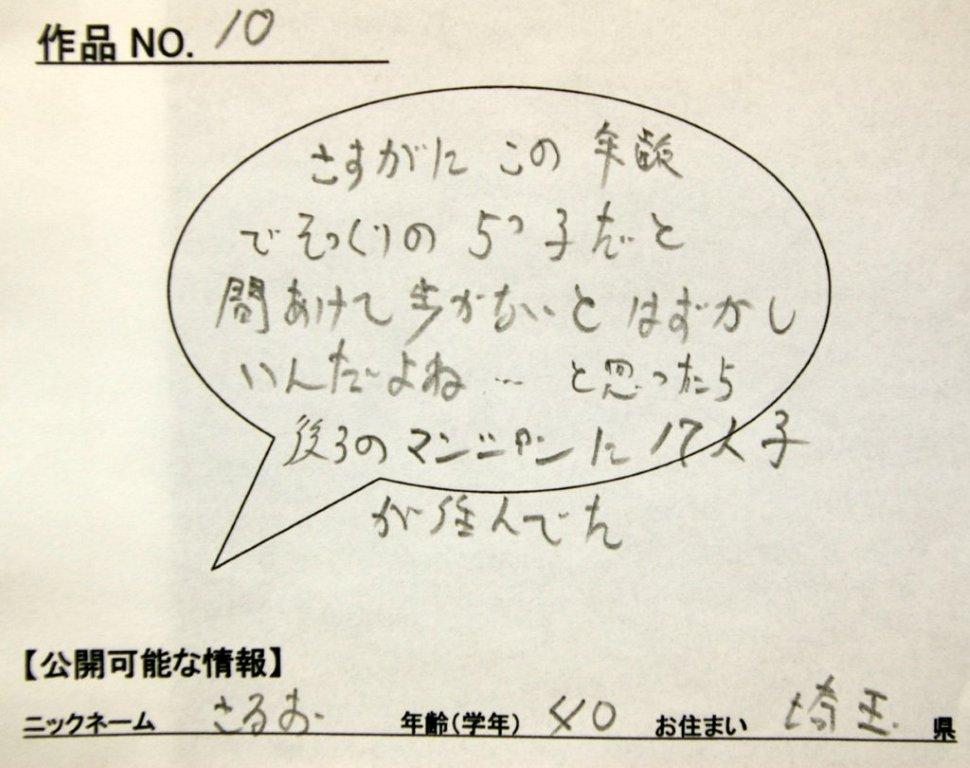 作品 NO. 10
さすがに この 年齢
でそっくりの 5つ子だと
間あけて歩かないと はずかし
いんだよね … と思ったら
後ろのマンションに 17人子
が住んでた
【公開可能な情報】
ニックネーム さるお 年齢(学年) 40 お住まい 埼玉 県